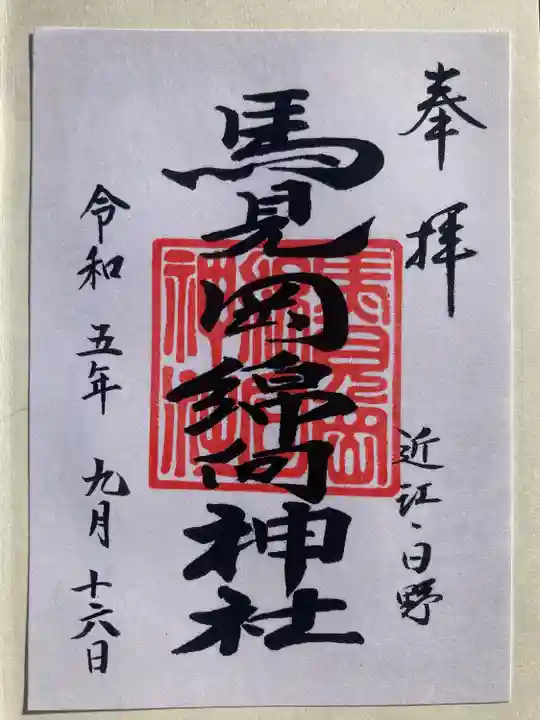 奉拝
近江・日野
馬見岡綿向神社
令和五年九月十六日